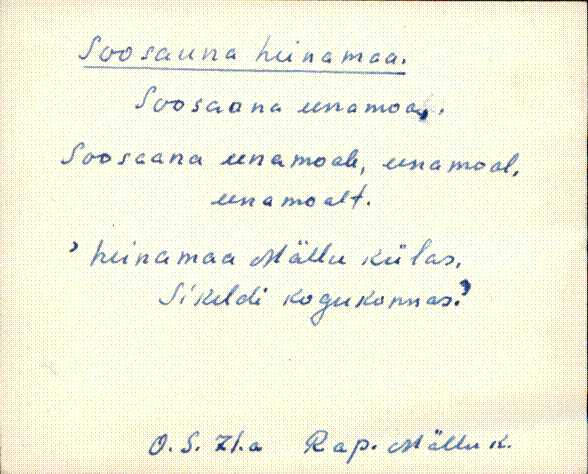 Soosauna heinamaa.
Soosaana einamoa.
Soosaana einamoale, einamoal,
einamoalt.
' heinamaa Mällu külas,
Sikeldi kogukonnas.'
O.S. 71.a Rap. Mällu k.